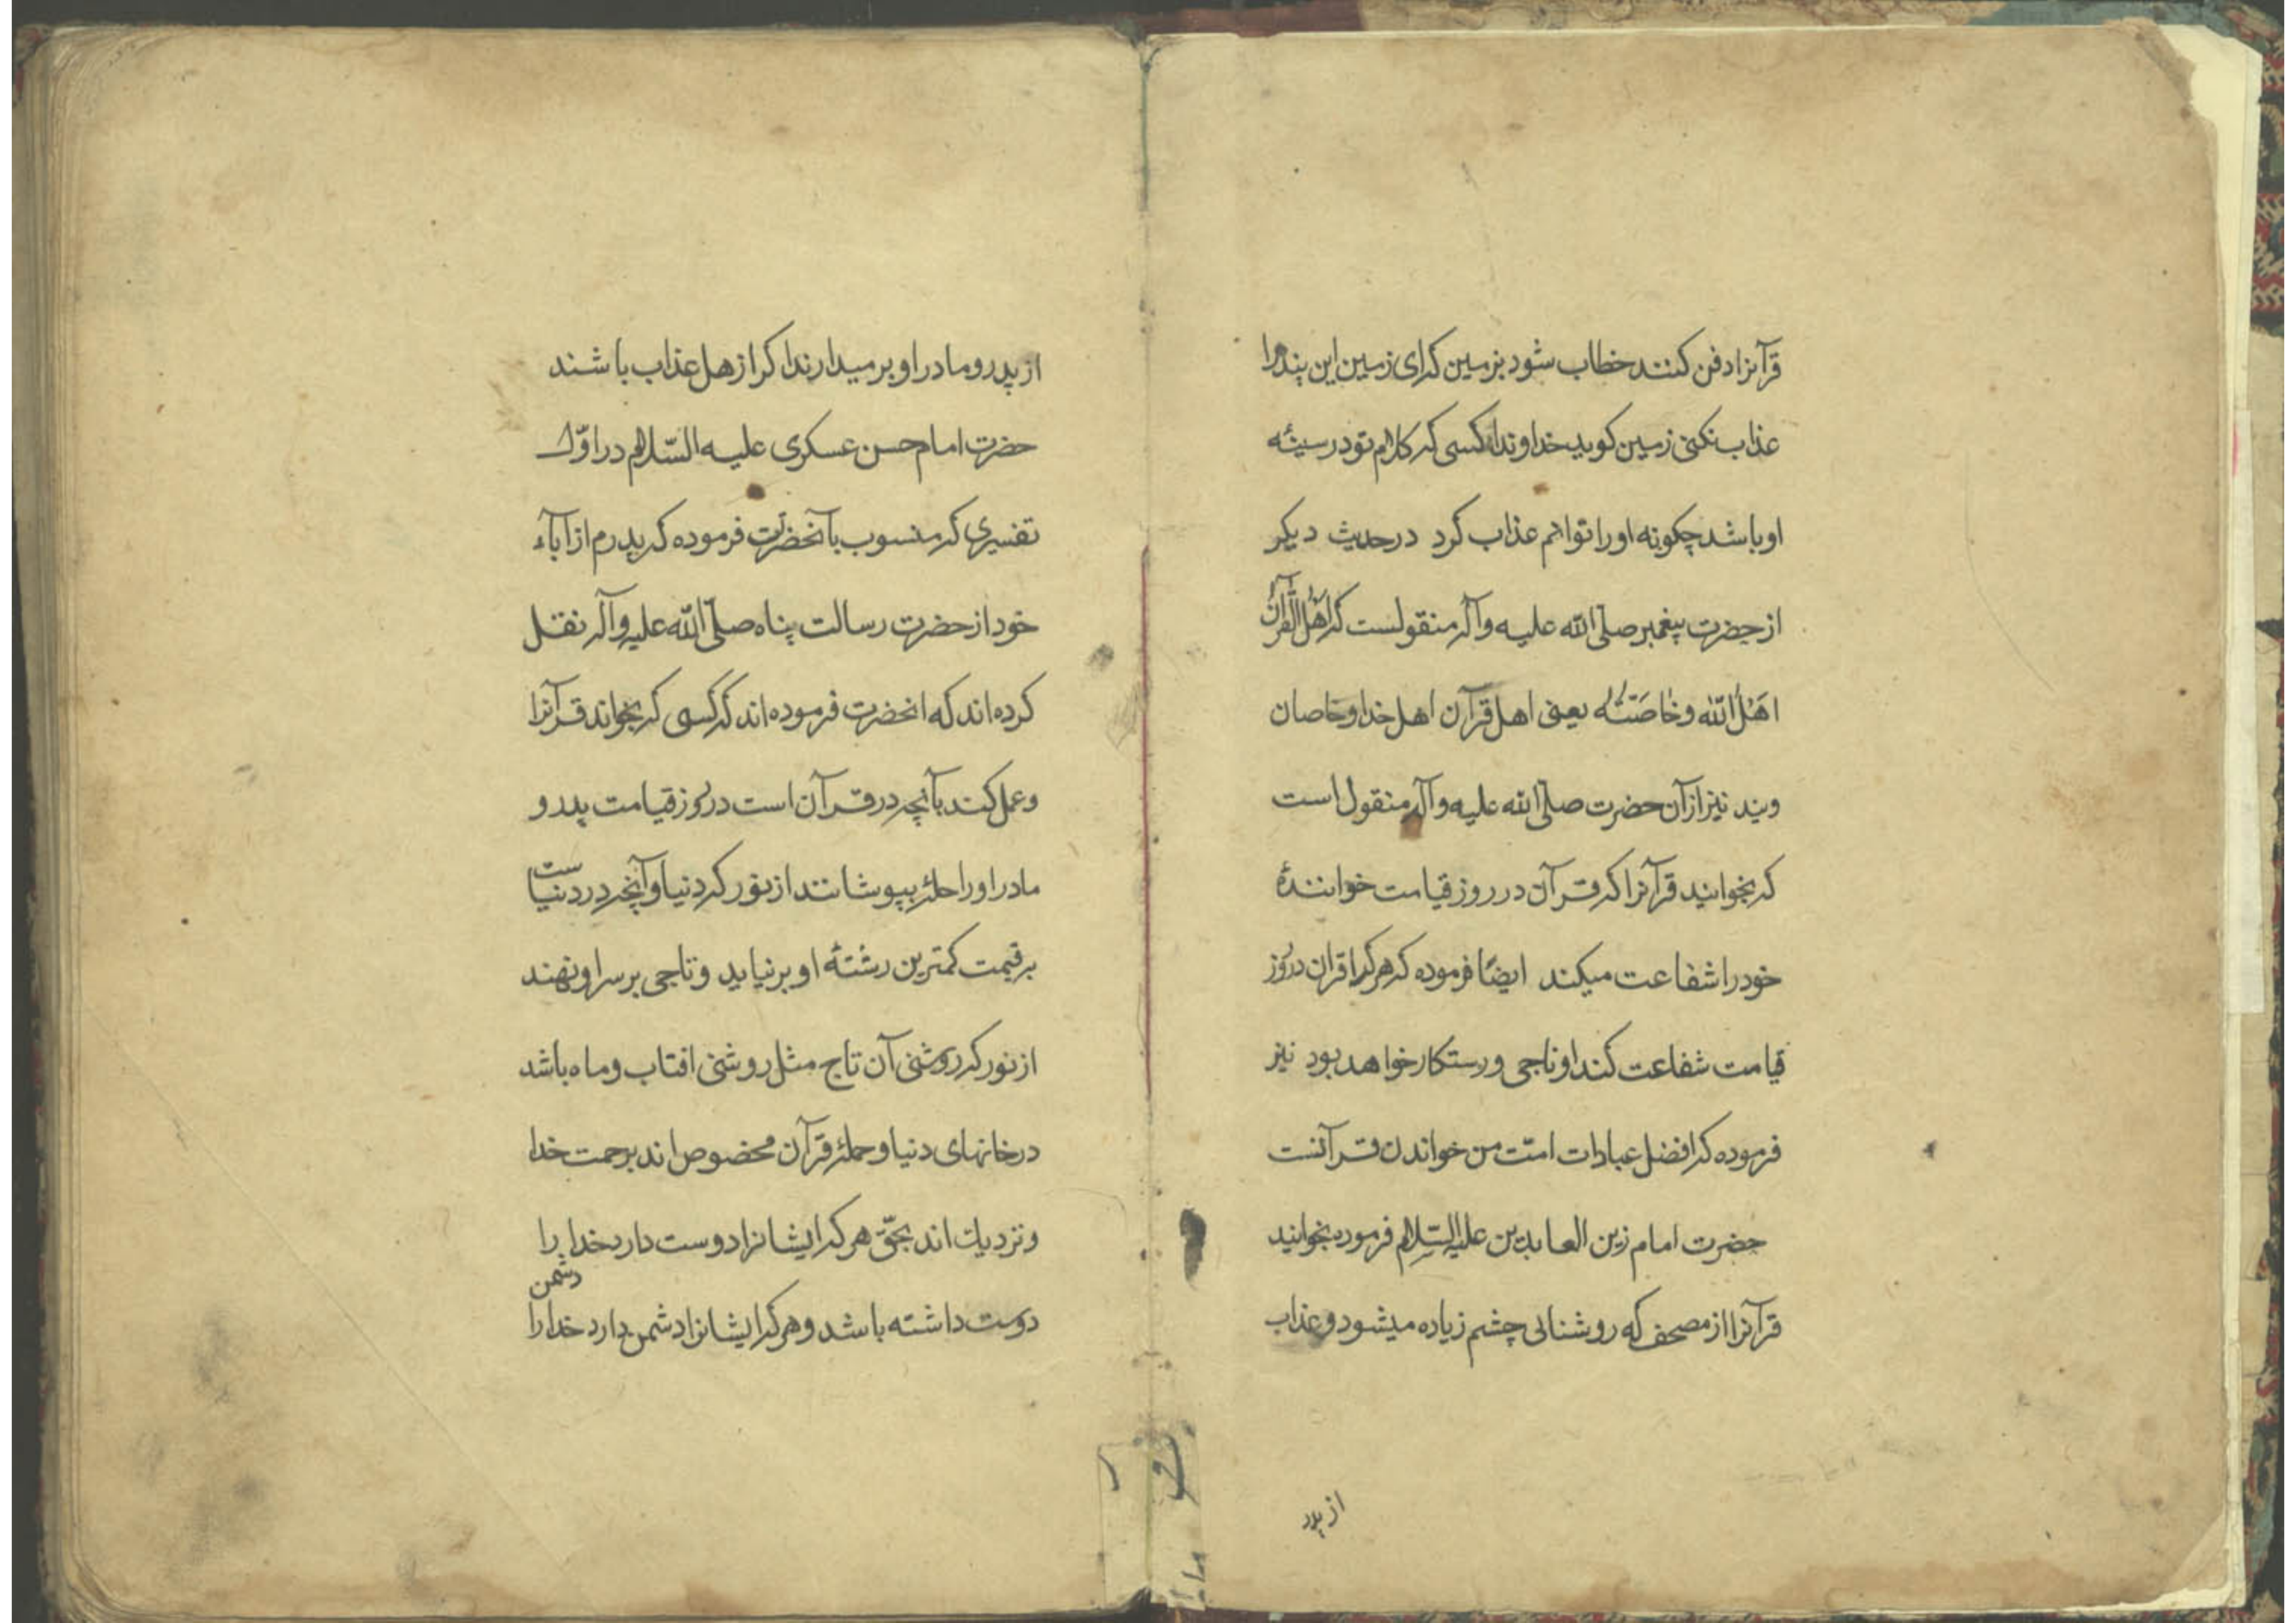 قرآنرا دفن کنند خطاب شود بزمین که ای زمین این بنده را
عذاب نکنی زمین کوید خداوندا کسی که کلام تو در سینهٔ
او باشد چکونه او را توانم عذاب کرد در حدیث دیکر
از حضرت پیغمبر صلّی الله علیه وآله منقولست که اَهْلُ الْقُرآنِ
اَهْلُ الله وخٰاصَتُّه یعنی اهل قرآن اهل خدا وخاصان
ویند نیز از آن حضرت صلّی الله علیه وآله منقول است
که بخوانید قرآنرا که قرآن در روز قیامت خوانندهٔ
خود را شفاعت میکند ایضًا فرموده که هر کرا قران در روز
قیامت شفاعت کند او ناجی ورستکار خواهد بود نیز
فرموده که افضل عبادات امّت من خواندن قرآنست
حضرت امام زین العابدین علیه السّلام فرموده بخوانید
قرآنرا از مصحف که روشنائی چشم زیاده میشود وعذاب
از پدر
از پدر ومادر او بر میدارند اکر از هل عذاب باشند
حضرت امام حسن عسکری علیه السّلام در اوّل
تفسیری که منسوب بآنحضرتست فرموده که پدرم از آباء
خود از حضرت رسالت پناه صلّی الله علیه وآله نقل
کرده اند که انحضرت فرموده اند که کسی که بخواند قرآنرا
وعمل کند بآنچه در قرآن است در روز قیامت پدر و
مادر او را حلهٔ بپوشانند از نور که دنیا وآنچه در دنیاست
بر قیمت کمترین رشتهٔ او بر نیاید وتاجی بر سر او نهند
از نور که روشنی آن تاج مثل روشنی افتاب وماه باشد
در خانهای دنیا وحملهٔ قرآن مخصوص اند برحمت خدا
ونزدیك اند بحقّ هر که ایشانرا دوست دارد خدا را
دوست داشته باشد وهر که ایشانرا دشمن دارد خدا را
دشمن